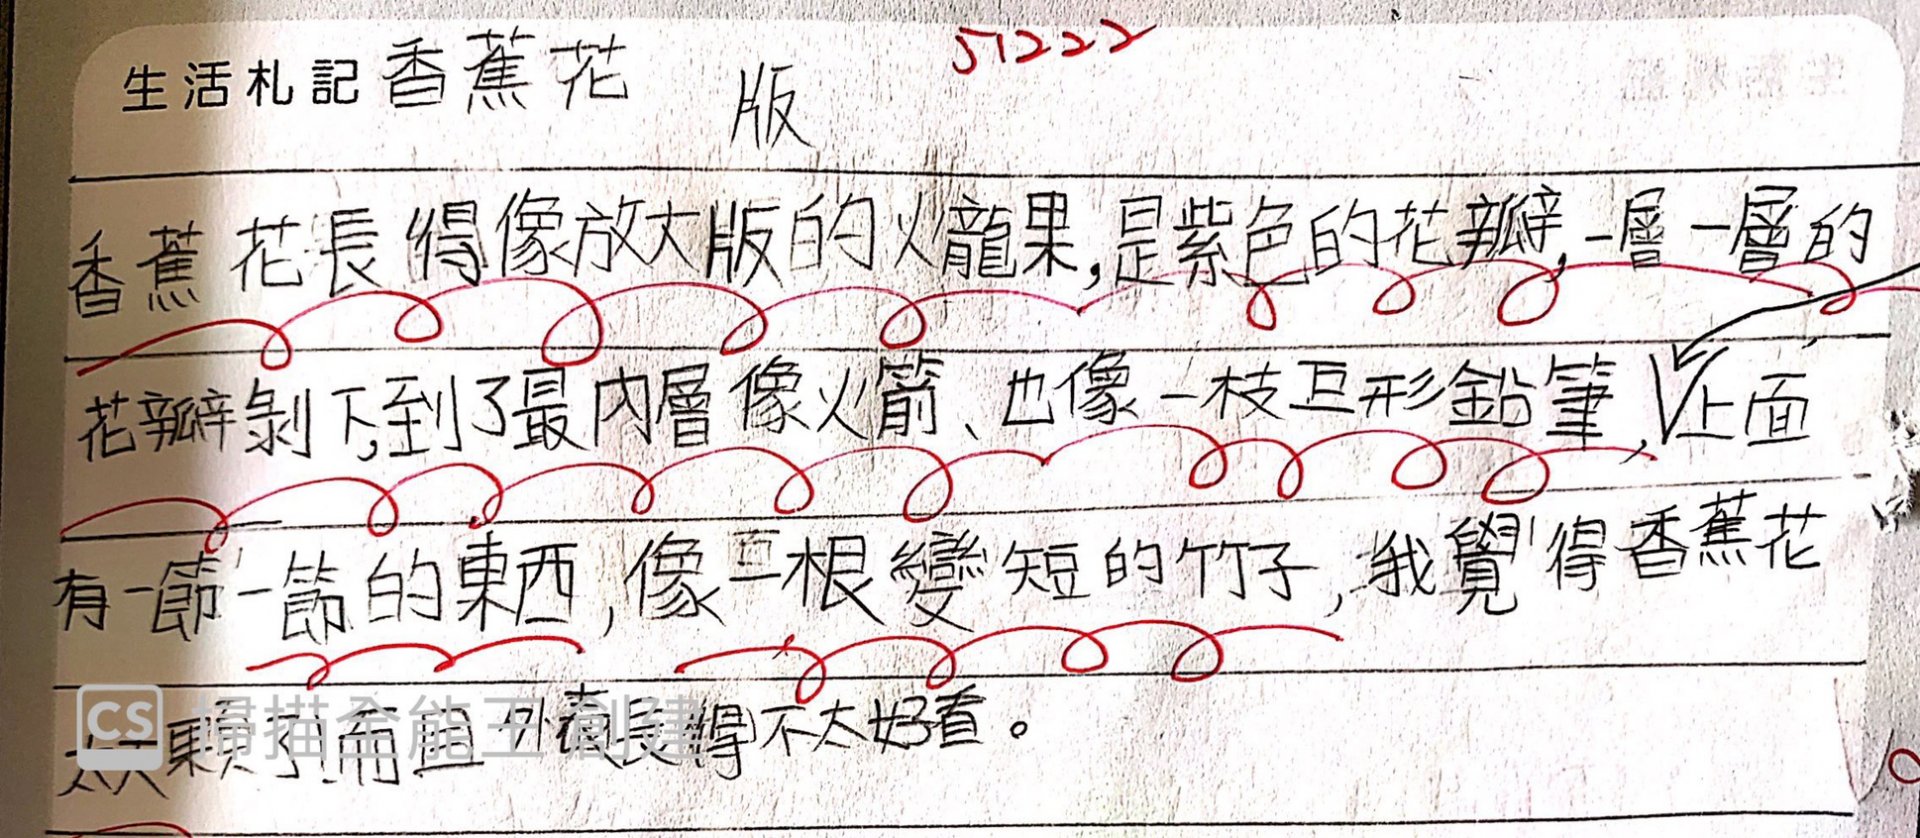 生活札記 香蕉花 版 51222
香蕉花長得像放大版的火龍果,是紫色的花瓣,一層一層的
花瓣剝下,到了最內層像火箭、也像一枝巨形鉛筆,上面
有一節一節的東西,像一根變短的竹子,我覺得香蕉花
太大顆了!而且外表長得不太好看。
CS 掃描全能王 創建